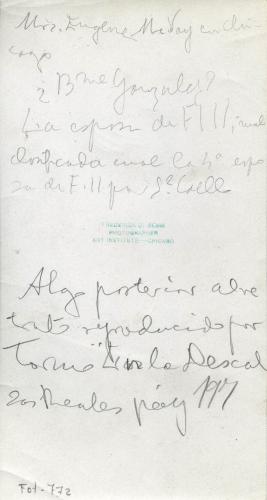 Mrs. Eugene McVoy en Chi-
cago
¿Bmé Gonzalez?
La esposa de F III, mal
clasificada cual la 4ª espo
sa de F. II por Sz Coello
FREDERICK O. BEMM
PHOTOGRAPHER
ART INSTITUTE--CHICAGO
Algo posterior al re
trato reproducido por
Tormo En las Descal
zas Reales pág
Fot-772